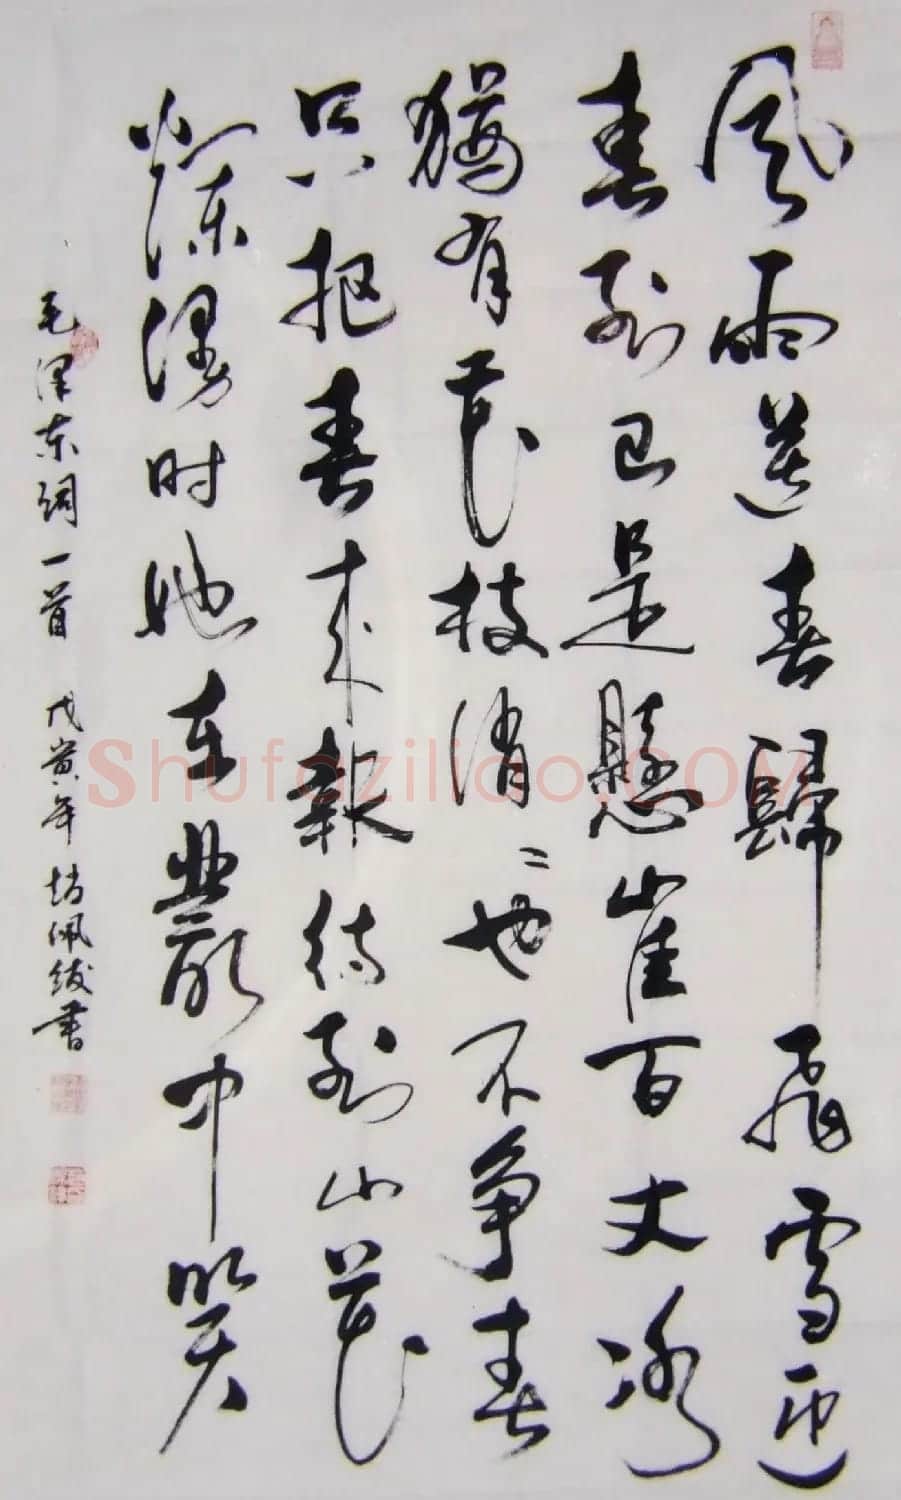 风雨送春歸 飛雪迎
春到已是懸崖百丈冰
猶有花枝俏〻也不争春
只把春来報待到山花
爛漫时她在叢中笑
毛泽东词一首 戊寅年赵佩书
Shufaziliao.COM